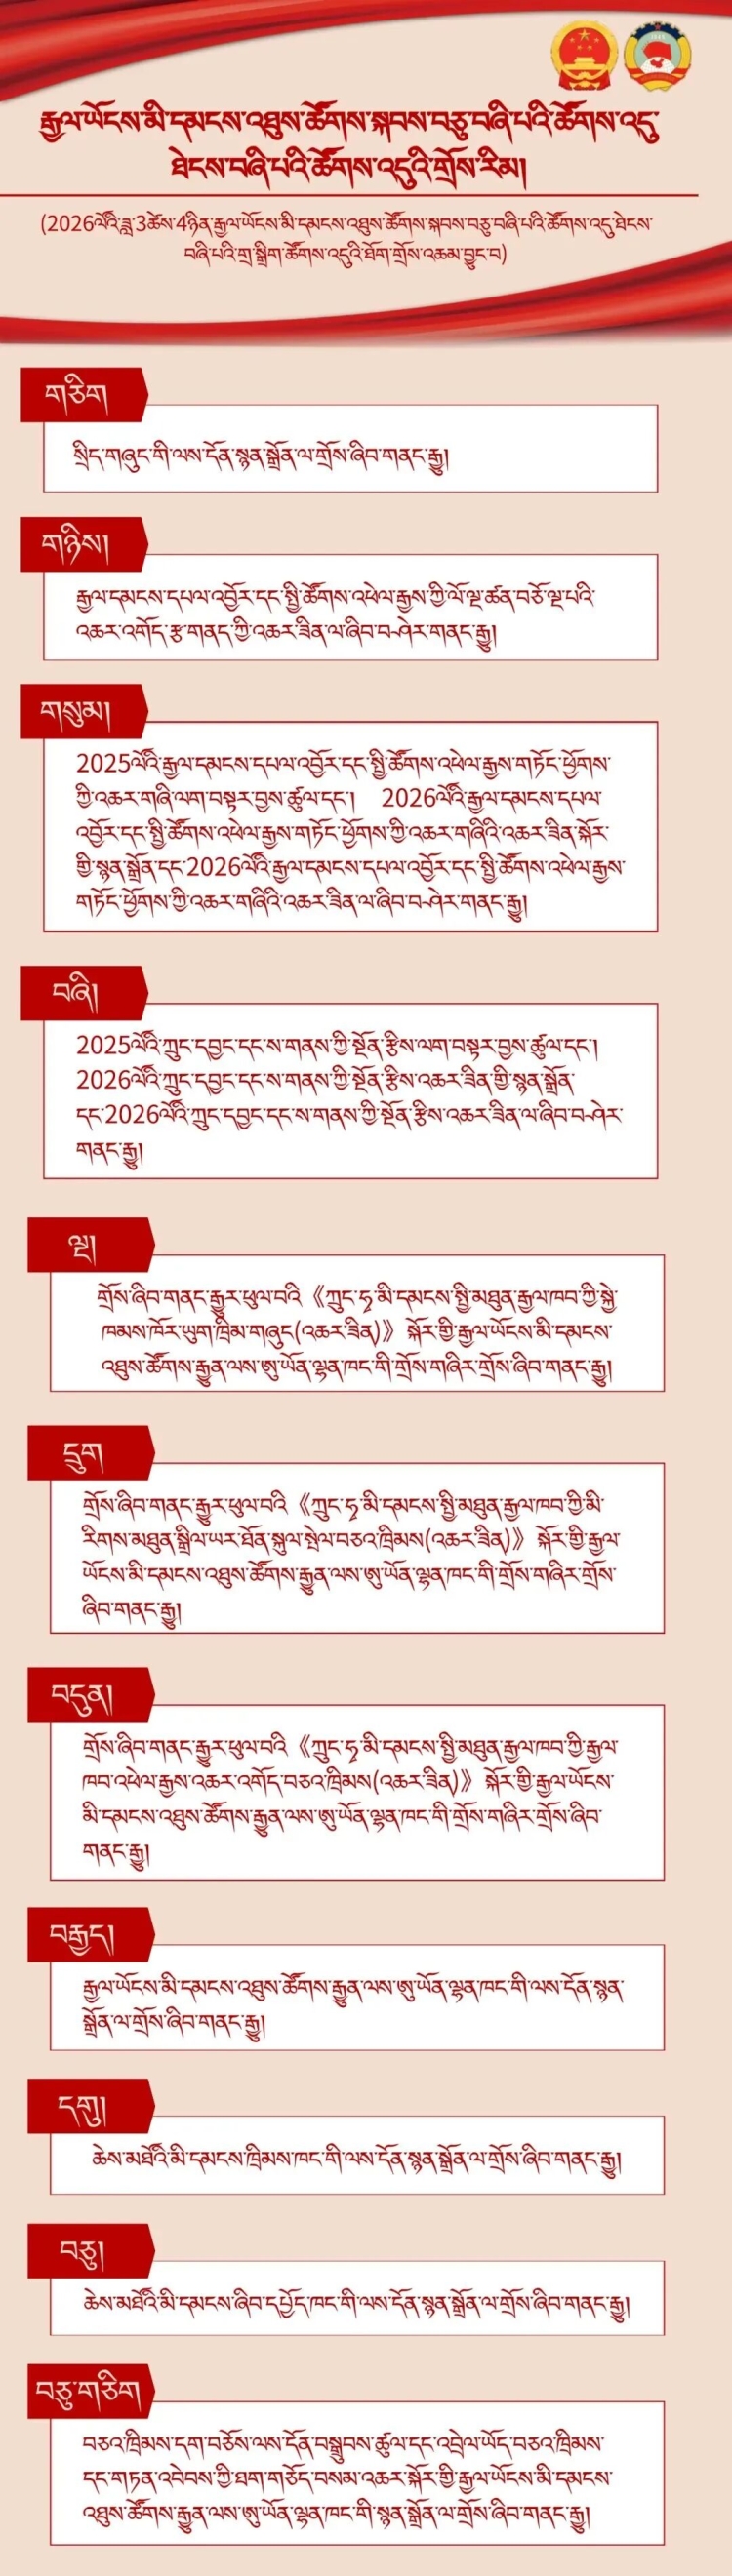 རྒྱལ་ཡོངས་མི་དམངས་འཐུས་ཚོགས་སྐབས་བཅུ་བཞི་པའི་ཚོགས་འདུ་
ཐེངས་བཞི་པའི་ཚོགས་འདུའི་གྲོས་རིམ།
(2026ལོའི་ཟླ་3ཚེས་4ཉིན་རྒྱལ་ཡོངས་མི་དམངས་འཐུས་ཚོགས་སྐབས་བཅུ་བཞི་པའི་ཚོགས་འདུ་ཐེངས་
བཞི་པའི་གྲ་སྒྲིག་ཚོགས་འདུའི་ཐོག་གྲོས་འཆམ་བྱུང་བ)
གཅིག
སྲིད་གཞུང་གི་ལས་དོན་སྙན་སྒྲོན་ལ་གྲོས་ཞིབ་གནང་རྒྱུ།
གཉིས།
རྒྱལ་དམངས་དཔལ་འབྱོར་དང་སྤྱི་ཚོགས་འཕེལ་རྒྱས་ཀྱི་ལོ་ལྔ་ཚན་བཅོ་ལྔ་པའི་
འཆར་འགོད་རྩ་གནད་ཀྱི་འཆར་ཟིན་ལ་ཞིབ་བཤེར་གནང་རྒྱུ།
གསུམ།
2025ལོའི་རྒྱལ་དམངས་དཔལ་འབྱོར་དང་སྤྱི་ཚོགས་འཕེལ་རྒྱས་གཏོང་ཕྱོགས་
ཀྱི་འཆར་གཞི་ལག་བསྟར་བྱས་ཚུལ་དང་། 2026ལོའི་རྒྱལ་དམངས་དཔལ་
འབྱོར་དང་སྤྱི་ཚོགས་འཕེལ་རྒྱས་གཏོང་ཕྱོགས་ཀྱི་འཆར་གཞིའི་འཆར་ཟིན་སྐོར་
གྱི་སྙན་སྒྲོན་དང་2026ལོའི་རྒྱལ་དམངས་དཔལ་འབྱོར་དང་སྤྱི་ཚོགས་འཕེལ་རྒྱས་
གཏོང་ཕྱོགས་ཀྱི་འཆར་གཞིའི་འཆར་ཟིན་ལ་ཞིབ་བཤེར་གནང་རྒྱུ།
བཞི།
2025ལོའི་ཀྲུང་དབྱང་དང་ས་གནས་ཀྱི་སྔོན་རྩིས་ལག་བསྟར་བྱས་ཚུལ་དང་།
2026ལོའི་ཀྲུང་དབྱང་དང་ས་གནས་ཀྱི་སྔོན་རྩིས་འཆར་ཟིན་གྱི་སྙན་སྒྲོན་
དང་2026ལོའི་ཀྲུང་དབྱང་དང་ས་གནས་ཀྱི་སྔོན་རྩིས་འཆར་ཟིན་ལ་ཞིབ་བཤེར་
གནང་རྒྱུ།
ལྔ།
གྲོས་ཞིབ་གནང་རྒྱུར་ཕུལ་བའི《ཀྲུང་ཧྭ་མི་དམངས་སྤྱི་མཐུན་རྒྱལ་ཁབ་ཀྱི་སྐྱེ་
ཁམས་ཁོར་ཡུག་ཁྲིམ་གཞུང(འཆར་ཟིན)》སྐོར་གྱི་རྒྱལ་ཡོངས་མི་དམངས་
འཐུས་ཚོགས་རྒྱུན་ལས་ཨུ་ཡོན་ལྷན་ཁང་གི་གྲོས་གཞིར་གྲོས་ཞིབ་གནང་རྒྱུ།
དྲུག
གྲོས་ཞིབ་གནང་རྒྱུར་ཕུལ་བའི《ཀྲུང་ཧྭ་མི་དམངས་སྤྱི་མཐུན་རྒྱལ་ཁབ་ཀྱི་མི་
རིགས་མཐུན་སྒྲིལ་ཡར་ཐོན་སྐུལ་སྤེལ་བཅའ་ཁྲིམས(འཆར་ཟིན)》སྐོར་གྱི་རྒྱལ་
ཡོངས་མི་དམངས་འཐུས་ཚོགས་རྒྱུན་ལས་ཨུ་ཡོན་ལྷན་ཁང་གི་གྲོས་གཞིར་གྲོས་
ཞིབ་གནང་རྒྱུ།
བདུན།
གྲོས་ཞིབ་གནང་རྒྱུར་ཕུལ་བའི《ཀྲུང་ཧྭ་མི་དམངས་སྤྱི་མཐུན་རྒྱལ་ཁབ་ཀྱི་རྒྱལ་
ཁབ་འཕེལ་རྒྱས་འཆར་འགོད་བཅའ་ཁྲིམས(འཆར་ཟིན)》སྐོར་གྱི་རྒྱལ་ཡོངས་
མི་དམངས་འཐུས་ཚོགས་རྒྱུན་ལས་ཨུ་ཡོན་ལྷན་ཁང་གི་གྲོས་གཞིར་གྲོས་ཞིབ་
གནང་རྒྱུ།
བརྒྱད།
རྒྱལ་ཡོངས་མི་དམངས་འཐུས་ཚོགས་རྒྱུན་ལས་ཨུ་ཡོན་ལྷན་ཁང་གི་ལས་དོན་སྙན་
སྒྲོན་ལ་གྲོས་ཞིབ་གནང་རྒྱུ།
དགུ།
ཆེས་མཐོའི་མི་དམངས་ཁྲིམས་ཁང་གི་ལས་དོན་སྙན་སྒྲོན་ལ་གྲོས་ཞིབ་གནང་རྒྱུ།
བཅུ།
ཆེས་མཐོའི་མི་དམངས་ཞིབ་དཔྱོད་ཁང་གི་ལས་དོན་སྙན་སྒྲོན་ལ་གྲོས་ཞིབ་གནང་རྒྱུ།
བཅུ་གཅིག
བཅའ་ཁྲིམས་དག་བཅོས་ལས་དོན་བསྒྲུབས་ཚུལ་དང་འབྲེལ་ཡོད་བཅའ་ཁྲིམས་
དང་གཏན་འབེབས་ཀྱི་ཐག་གཅོད་བསམ་འཆར་སྐོར་གྱི་རྒྱལ་ཡོངས་མི་དམངས་
འཐུས་ཚོགས་རྒྱུན་ལས་ཨུ་ཡོན་ལྷན་ཁང་གི་སྙན་སྒྲོན་ལ་གྲོས་ཞིབ་གནང་རྒྱུ།